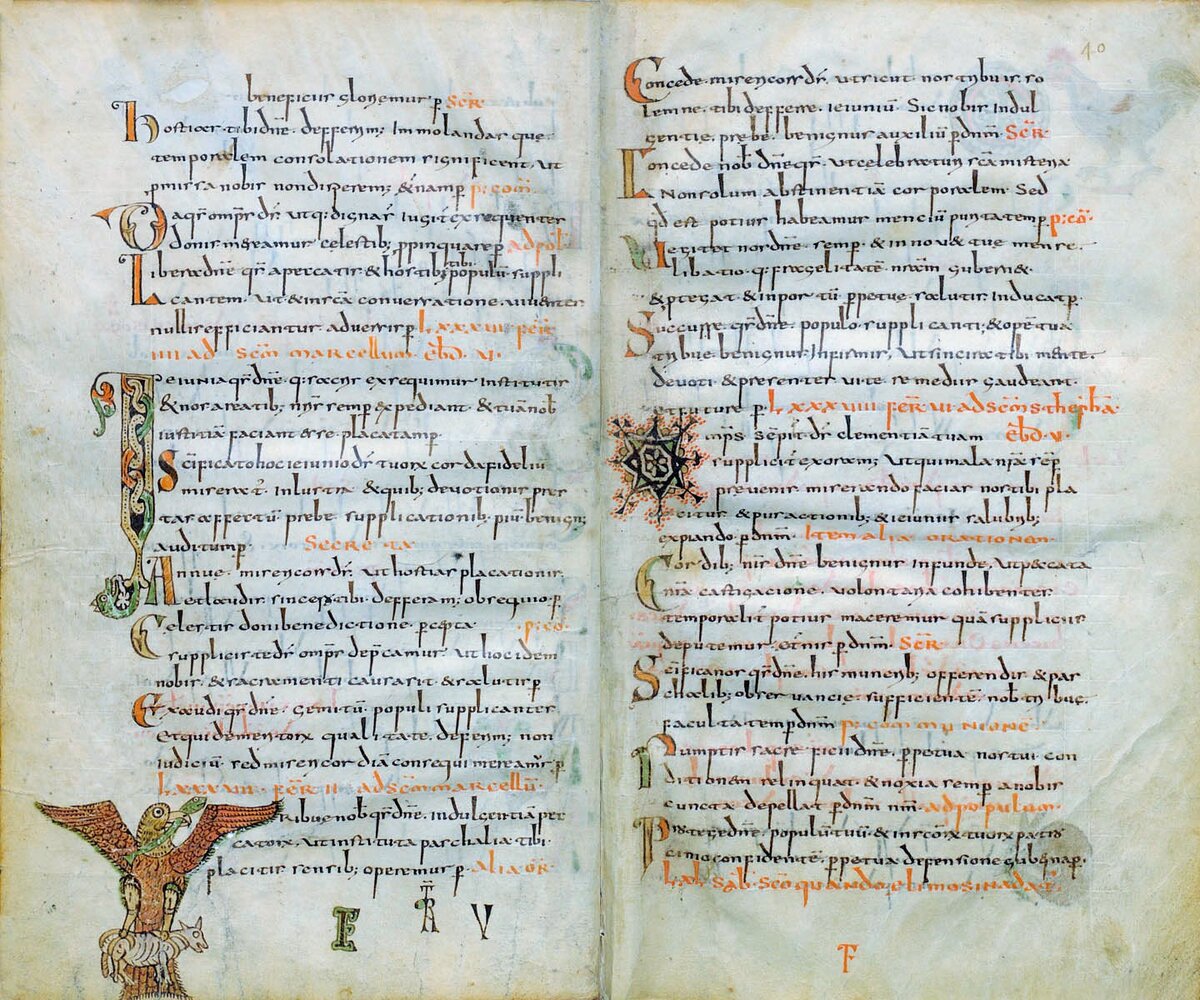 beneficiis gloriemur p̄ SCR̄
hostias tibi dn̄e defferim; Immolandas que
temporalem consolationem significent. Ut
p̄missa nobis non disperem; & nam p̄ p: com̄
Da qs̄ omp̄s ds̄ ut q; dignas iugit̄ exsequentes
donis mereamur celestib; p̄pinquare p̄ ad pōl
Libera dn̄e qs̄ a peccatis & hostib; tibi populū suppli
cantem. Ut & in sc̄a conversatione viventes
nullis efficiantur adversis p̄ LXXXVII fer̄
IIII ad sc̄m marcellum ebd̄. V.
Ieiunia qs̄ dn̄e q; sacris exsequimur institutis
& nos a reatib; nr̄is semp̄ expediant. & tuā nob̄
iustitiā faciant esse placatam p̄
Sc̄ificato hoc ieiunio ds̄ tuorx cor da fideliū
miserat̄. Inlustra & quib; devotionis pres
tas affectū prebe supplicationib; piū benign;
auditum p̄. Secreta
Annue misericors ds̄ ut hostias placationis
et laudis sinceris tibi defferam; obsequio p̄
Celestis doni benedictione p̄cepta p: co
supplicis te ds̄ omp̄s dep̄camur. Ut hoc idem
nobis & sacramenti causa sit & salutis p̄
Exaudi qs̄ dn̄e gemitū populi supplicantes
Et qui de mentorx qualitate deferim; non
iudiciū sed misericordiā consequi mereamur p̄
LXXXVIII fer̄ II ad sc̄m marcellū
Tribue nob̄ qs̄ dn̄e indulgentiā pec
catorx. Ut instituta paschalia tibi
placitis sensib; operemur p̄ alia or̄
F R V
40
Concede misericors ds̄ ut sicut nos tribuis so
lemne tibi defferre ieiuniū. Sic nobis indul
gentie prebe benignus auxiliū p̄ dnm̄ SCR̄
Concede nob̄ dn̄e qs̄ ut celebraturi sc̄a misteria
Non solum abstinentiā corporalem. Sed
qđ est potius habeamus menciū puritatem p̄ p: co
Vegitet nos dn̄e semp̄ & innov& tue mense
libatio q; fragelitatē nr̄am gubern&
& p̄tegat & in portū p̄petue salutis inducat p̄
Succurre qs̄ dn̄e populo supplicanti; & opē tuā
tribue benignus infirmis. Ut sincira tibi mente
devoti & presentes vite remediis gaudeant
et future p̄ LXXXVIIII fer̄ VI ad sc̄m stephā
Omps̄ sēpit̄ ds̄ clementiā tuam ebd̄ V
suppliciter exoram; Ut qui mala nr̄a sēp̄
prevenis miserando facias nos tibi pla
citus & puris actionib; & ieiuniis salubrib;
expiando p̄ dnm̄. Item alia orationem
Cordib; nr̄is dn̄e benignus infunde. Ut peccata
nr̄a castigacione volontaria cohibentes
temporalit̄ potius maceremur quā suppliciis
deputemur. et̄nis p̄ dnm̄. SCR̄
Sc̄ificanos qs̄ dn̄e his munerib; offerendis & pas
chalib; observancie sufficientē nob̄ tribue
facultatem p̄ dnm̄ p: communionē
Sumptis sacreficii dn̄e p̄petua nos tui con
ditionem relinquat & noxia semp̄ a nobis
cuncta depellat p̄ dnm̄ nm̄ ad populum
Protege dn̄e populū tuū & in sc̄orx tuorx patro
cinio confidentē p̄petua defensione gub̄na p̄
Lal sab̄ sc̄o quando elimosina dat̄
F